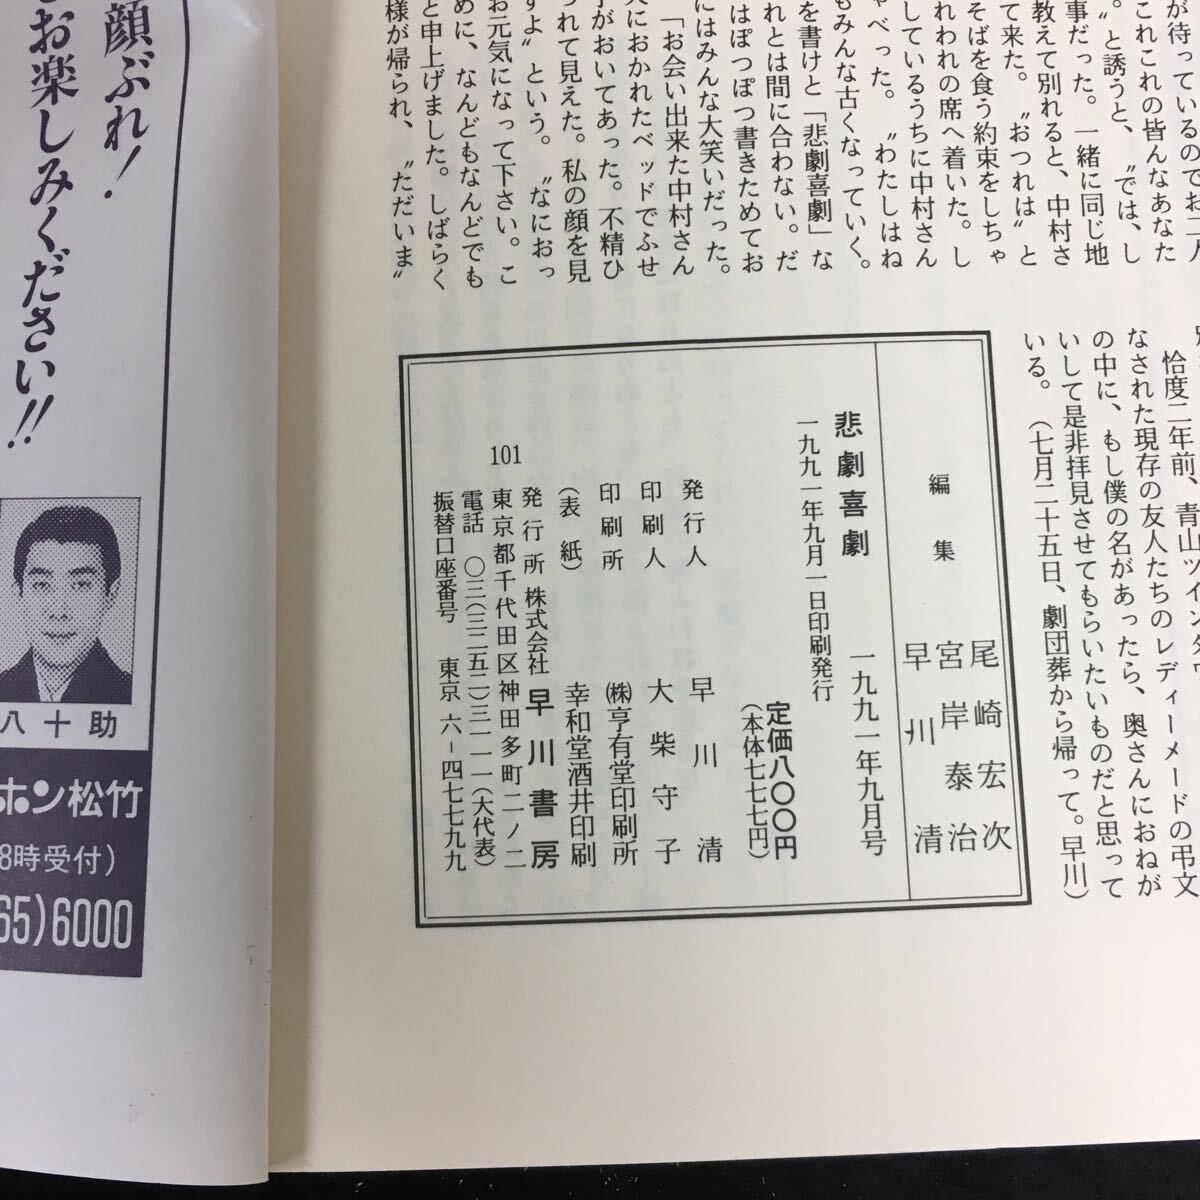 が待っているのでお二八
これこれの皆んなあなた
。〟と誘うと、〝では、し
事だった。一緒に同じ地
教えて別れると、中村さ
て来た。〝おつれは〟と
そばを食う約束をしちゃ
われわれの席へ着いた。し
しているうちに中村さん
ゃべった。〝わたしはね
もみんな古くなっていく。
を書けと「悲劇喜劇」な
れとは間に合わない。だ
はぽつぽつ書きためてお
にはみんな大笑いだった。
「お会い出来た中村さん
におかれたベッドでふせ
がおいてあった。不精ひ
られて見えた。私の顔を見
すよ〟という。〝なにおっ
お元気になって下さい。こ
めに、なんどもなんどでも
と申上げました。しばらく
様が帰られ、〝ただいま〟
恰度二年前、青山ツイン
なされた現存の友人たちのレディーメードの弔文
の中に、もし僕の名があったら、奥さんにおねが
いして是非拝見させてもらいたいものだと思って
いる。（七月二十五日、劇団葬から帰って。早川）
編集
尾崎宏次
宮岸泰治
早川清
悲劇喜劇 一九九一年九月号
一九九一年九月一日印刷発行
定価八〇〇円
（本体七七七円）
発行人 早川清
印刷人 大柴守子
印刷所 ㈱亨有堂印刷所
（表紙） 幸和堂酒井印刷
発行所 株式会社 早川書房
101 東京都千代田区神田多町二ノ二
電話 〇三（三二五二）三一一一（大代表）
振替口座番号 東京 六-四七七九九
顔ぶれ！
お楽しみください!!
八十助
ホン松竹
8時受付）
65）6000